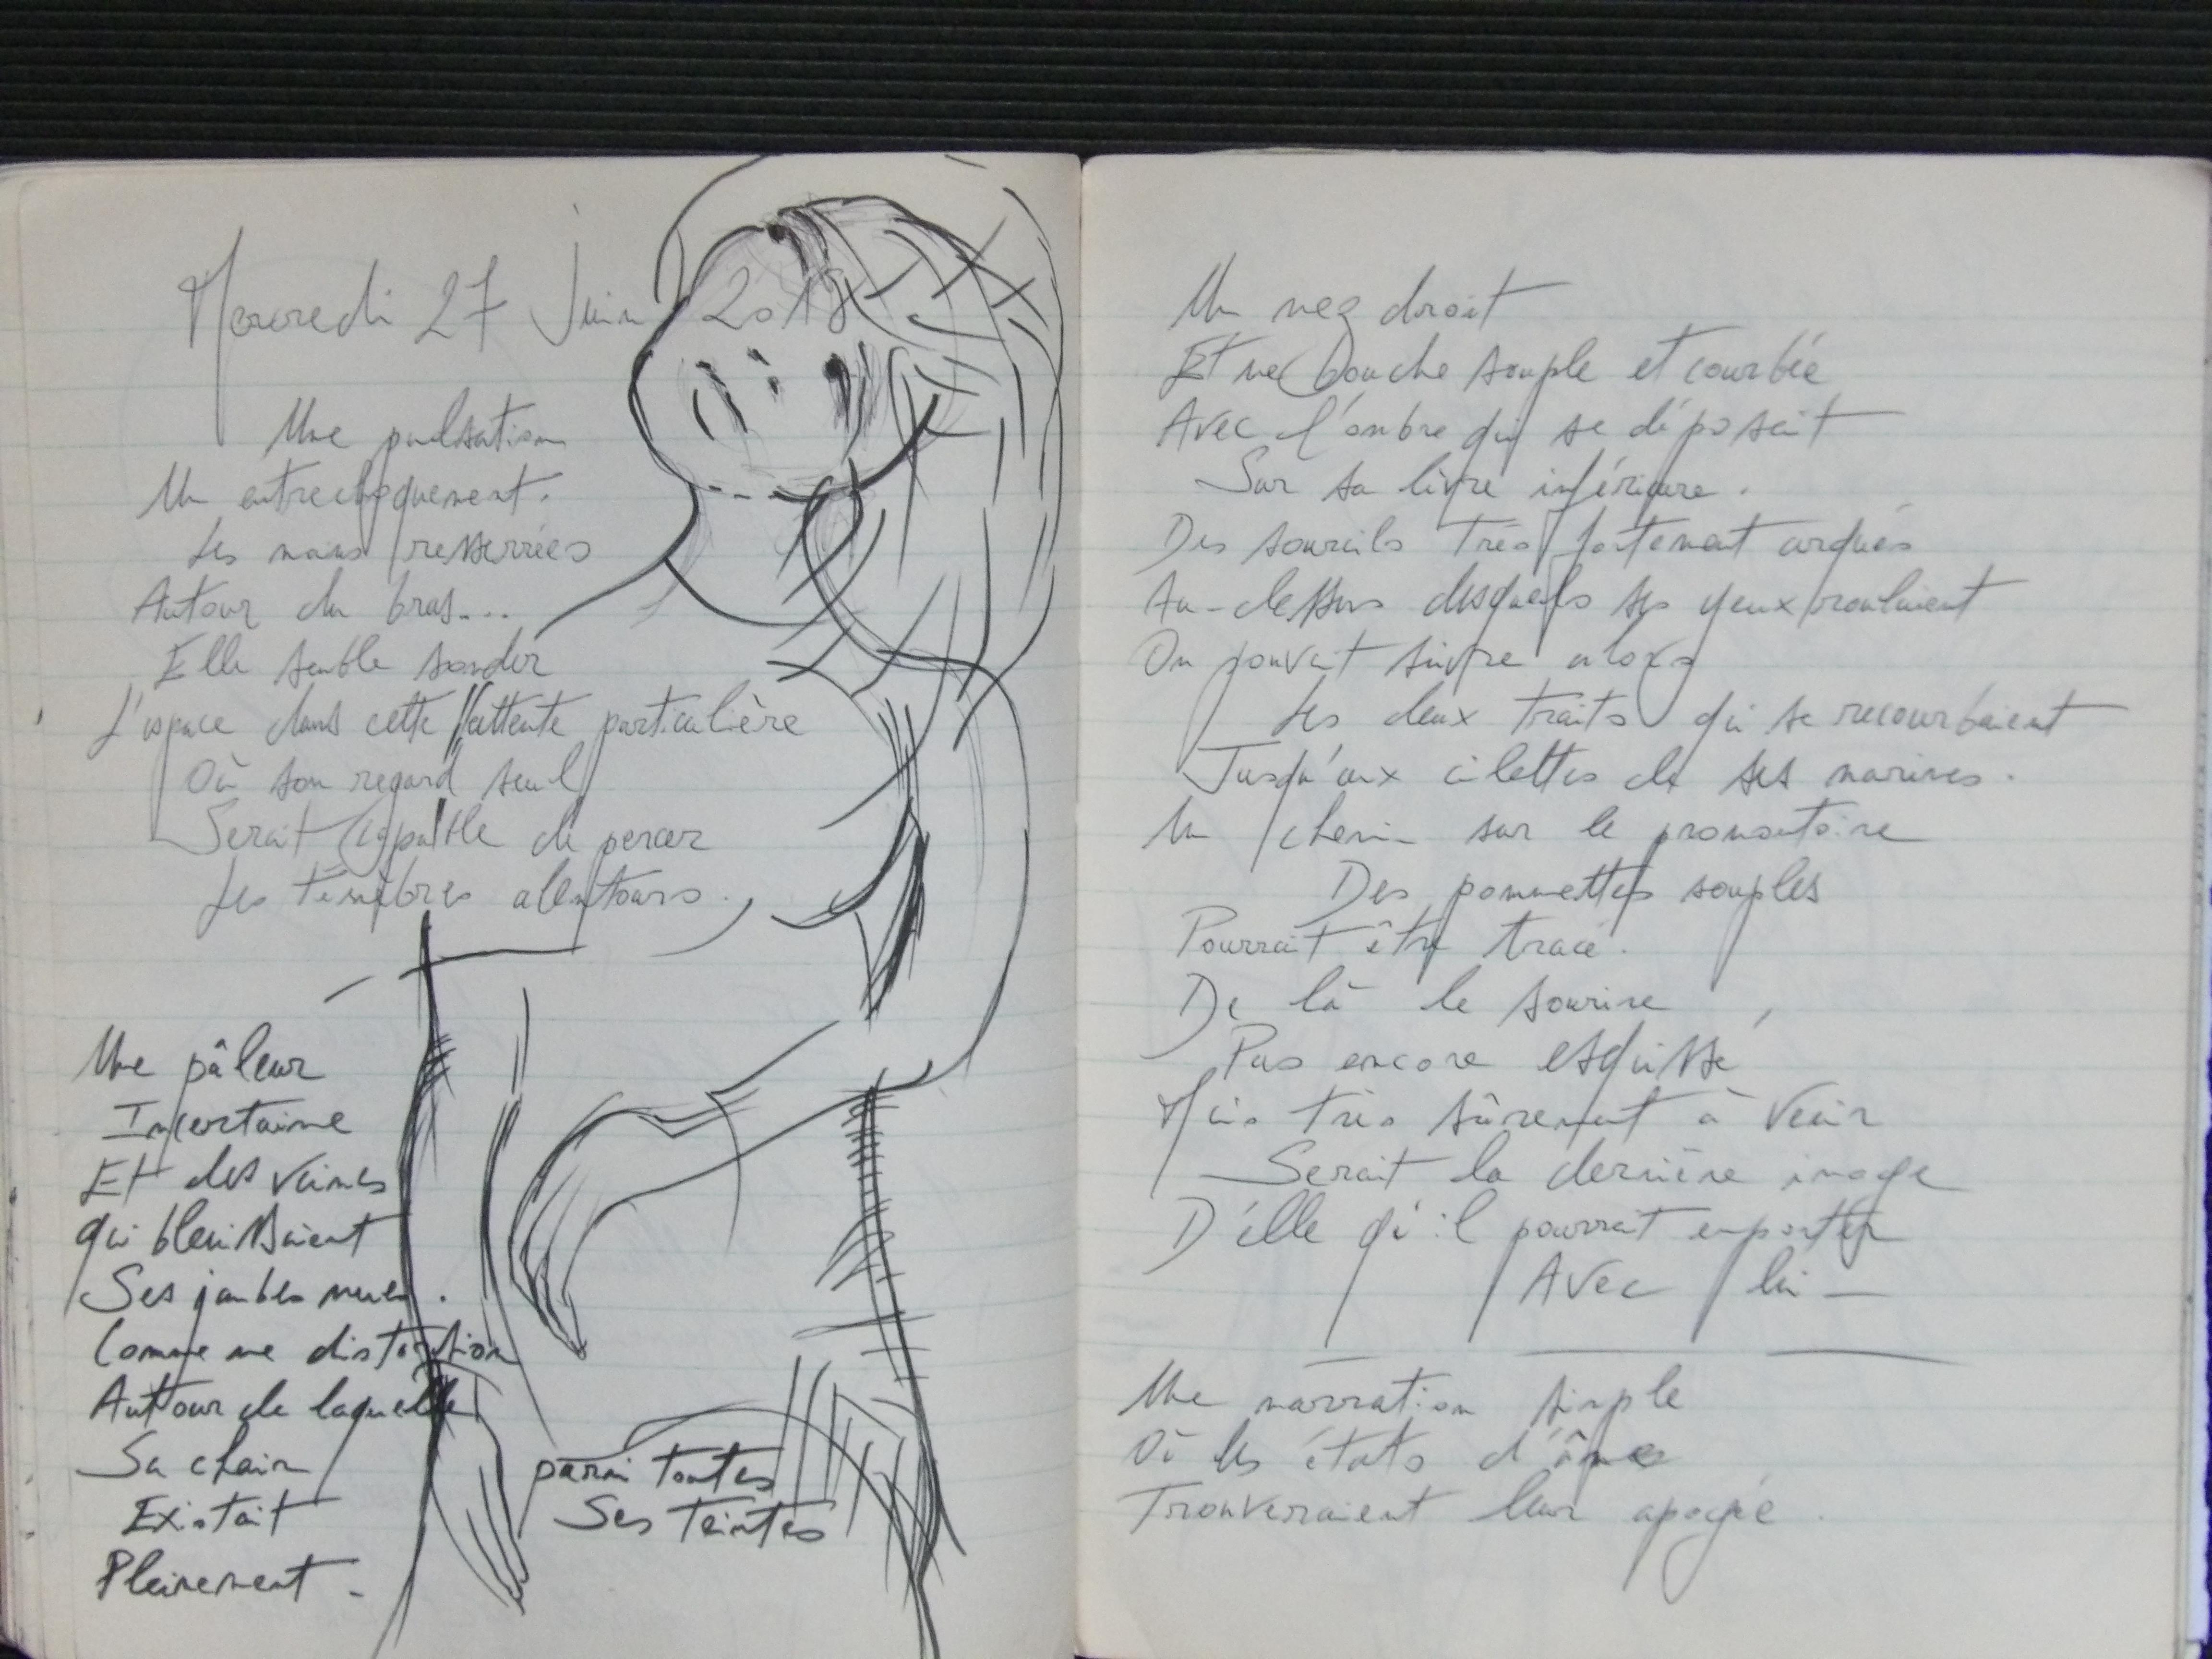 Mercredi 27 Juin 2018
Une pulsation
Un entrechoquement.
Les mains resserrées
Autour du bras...
Elle semble sonder
L'espace dans cette attente particulière
Où son regard seul
Serait capable de percer
Les ténèbres alentours.
Une pâleur
Incertaine
Et des veines
qui bleuissaient
Ses jambes nues.
Comme une distorsion
Autour de laquelle
Sa chair
Existait
Pleinement -
parmi toutes
Ses teintes
Un nez droit
Et une bouche souple et courbée
Avec l'ombre qui se déposait
Sur sa lèvre inférieure.
Des sourcils très fortement arqués
Au-dessus desquels ses yeux roulaient
On pouvait suivre alors
Les deux traits qui se recourbaient
Jusqu'aux ailettes de ses narines.
Un chemin sur le promontoire
Des pommettes souples
Pourrait être tracé.
De là le sourire,
Pas encore esquissé
Mais très sûrement à venir
Serait la dernière image
D'elle qu'il pourrait emporter
Avec lui —
Une narration simple
Où les états d'âme
Trouveraient leur apogée.